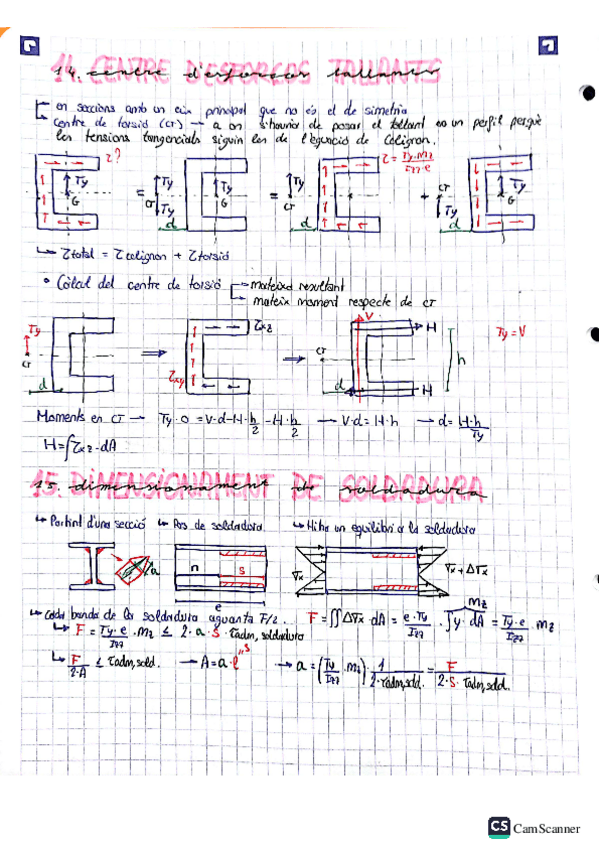 14. CENTRE D'ESFORÇOS TALLANTS
en seccions amb un eix principal que no és el de simetria
centre de torsió (CT) → a on s'hauria de posar el tallant en un perfil perquè
les tensions tangencials siguin les de l'equació de Colignon.
τ? Ty G = Ty CT Ty d Ty G = Ty CT d τ = Ty·mz / Izz·e + CT Ty d Ty G
↳ τtotal = τcolignon + τtorsió
• Càlcul del centre de torsió → mateixa resultant
→ mateix moment respecte de CT
Ty CT d ⇒ τxz τxy → CT V H H d h Ty = V
Moments en CT → Ty·0 = V·d-H·h/2 -H·h/2 → V·d = H·h → d = H·h/Ty
H=∫τxz·dA
15. DIMENSIONAMENT DE SOLDADURA
↳ Partint d'una secció ↳ Pas de soldadura ↳ Hi ha un equilibri a la soldadura
a n s e ∇x ∇x + Δ∇x
↳ Cada banda de la soldadura aguanta F/2. F = ∬Δ∇x dA = e·Ty/Izz · ∫y dA = Ty·e/Izz · mz
mz
↳ F = Ty·e/Izz · mz ≤ 2·a·s·τadm, soldadura
↳ F/2·A ≤ τadm, sold. → A = a·l "s → a = (Ty/Izz · mz) · 1/2·τadm, sold. = F/2·s·τadm, sold.
CS CamScanner